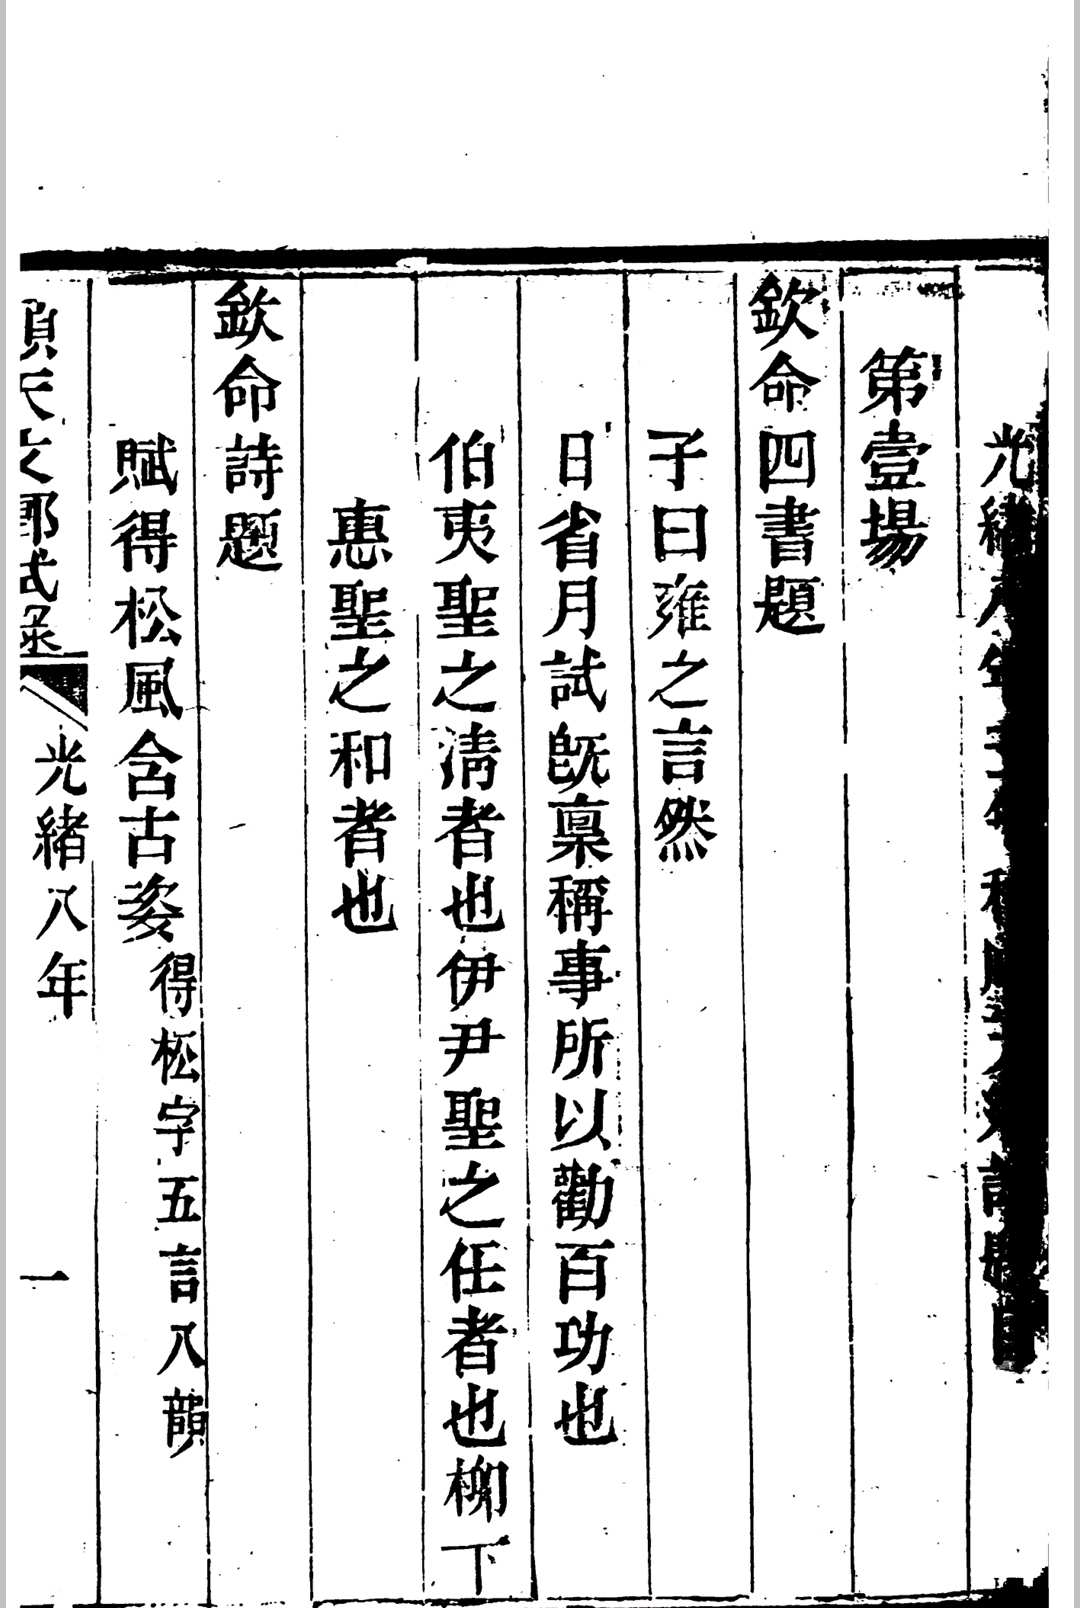 光緒
第壹場
欽命四書題
子曰雍之言然
日省月試既稟稱事所以勸百功也
伯夷聖之清者也伊尹聖之任者也柳下
惠聖之和者也
欽命詩題
賦得松風含古姿得松字五言八韻
順天文鄉試錄 光緒八年 一